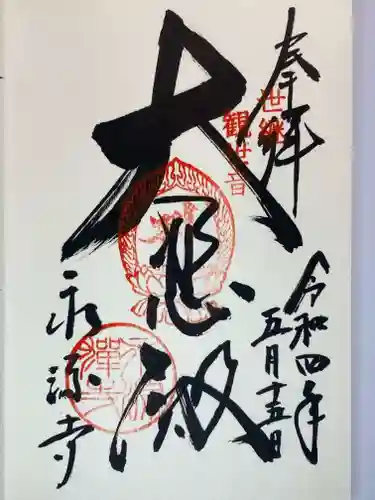 奉拝
世継
観世音
大悲殿
令和四年
五月十五日
永源寺